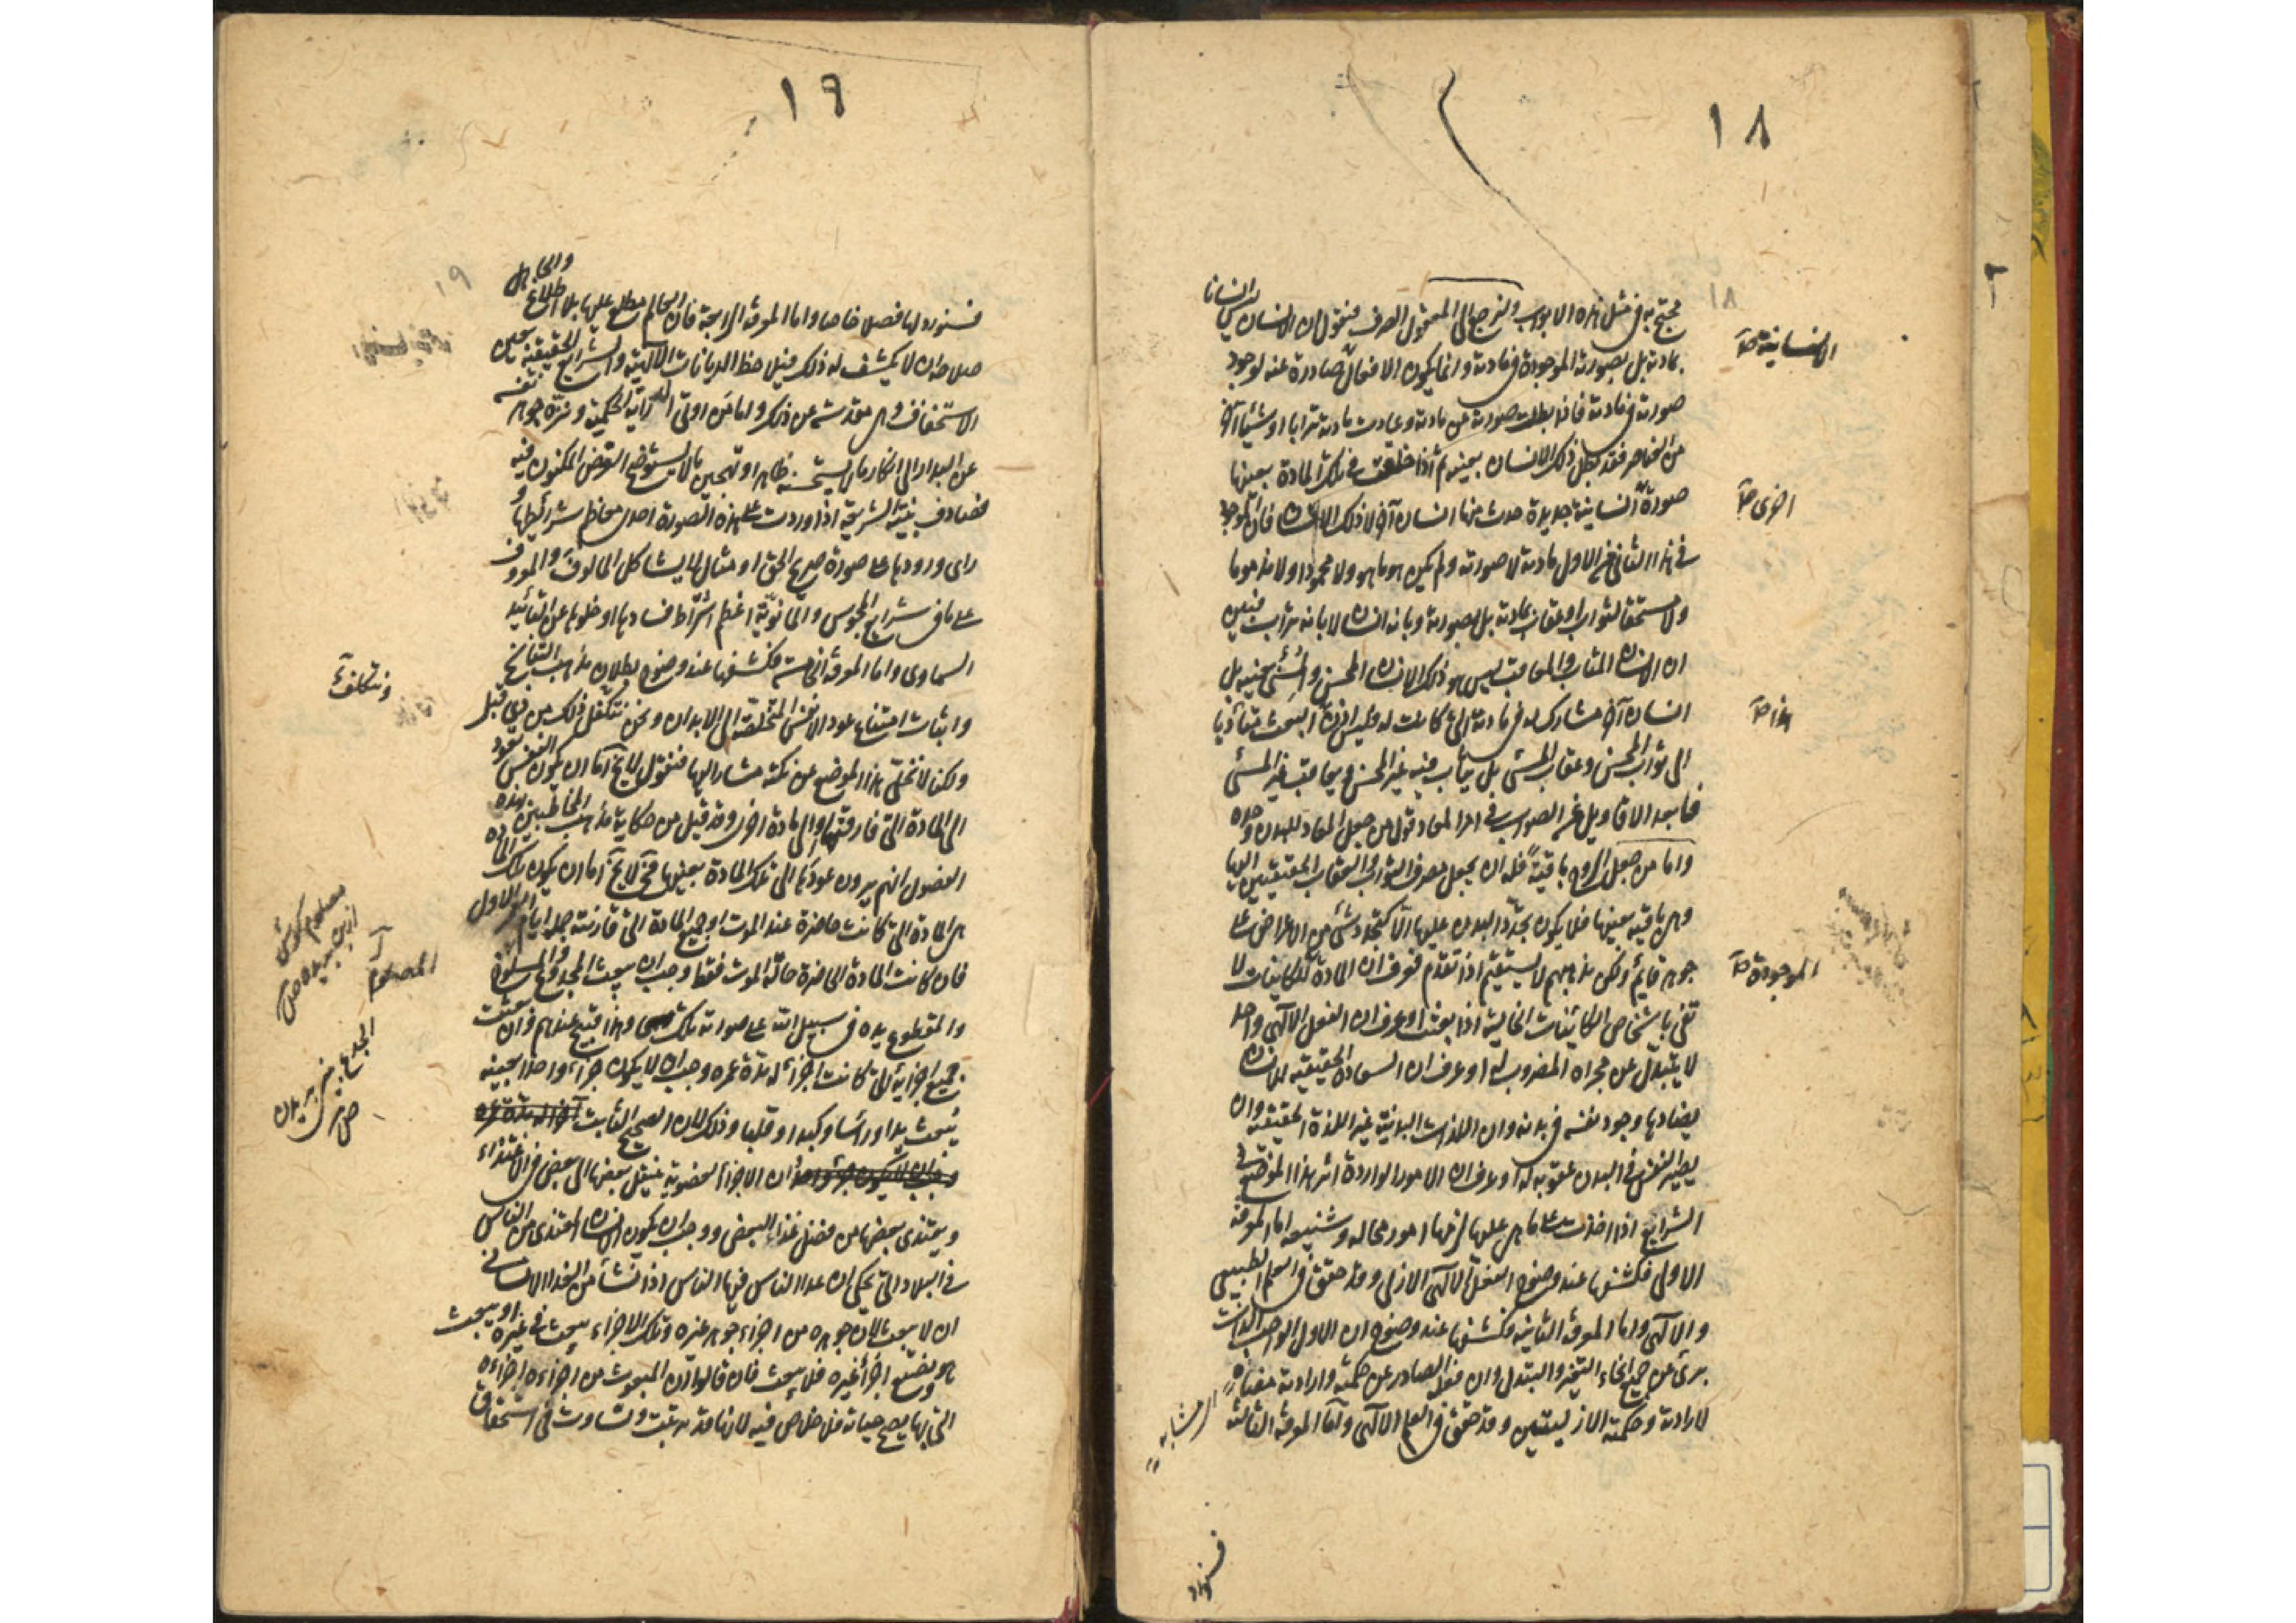 ١٨
١٨
يحتج به في مثل هذه الابواب ولنرجع الى المعقول الصرف فنقول ان الانسان ليس انسانا
بمادته بل بصورته الموجودة في مادته وانما يكون الافعال صادرة عنه لوجود
صورته في مادته فاذا بطلت صورته عن مادته وعادت مادته ترابا او شيئا آخر
من العناصر فقد بطل ذلك الانسان بعينه ثم اذا خلقت في تلك المادة بعينها
صورة انسانية جديدة حدث منها انسان آخر لا ذلك الانسان فان الموجود
في هذا الثاني من الاول مادته لا صورته ولم يكن هو ما هو ولا محمودا ولا مذموما
ولا مستحقا لثواب او عقاب بمادته بل بصورته وبانه انسان لا بانه تراب فتبين
ان الانسان المثاب والمعاقب ليس هو ذلك الانسان المحسن والمسئ بعينه بل
انسان آخر مشارك له في مادته التى كانت له فليس اذن البعث متأديا
الى ثواب المحسن وعقاب المسئ بل يثاب فيه غير المحسن ويعاقب غير المسئ
فابعد الاقاويل عن الصواب في امر المعاد قول من جعل المعاد للبدن وحده
واما من جعل الروح باقية فله ان يجعل مصرف الثواب والعقاب الحقيقيين اليها
وهى باقية بعينها فلا يكون تجدد البدن عليها الا كتجدد شئ من الاعراض على
جوهر قايم ولكن مذهبهم لا يستقيم اذا تقدم فعرف ان المادة للكاينات لا
تفى باشخاص الكاينات الخالية اذا بعثت او عرف ان الفعل الالهى واحد
لا يتبدل عن مجراه المضروب له او عرف ان السعادة الحقيقية للانسان
يضادها وجود نفسه في بدنه وان اللذات البدنية غير اللذة الحقيقية وان
يصير النفس في البدن عقوبة له او عرف ان الامور الواردة اثر هذا الموضوع في
الشرايع اذا اخذت على ما هى عليها لزمها امور محالة وشنيعة اما المعرفة
الاولى فكشفها عند وضوح الفعل الالهى الازلى وقد حقق في العلم الطبيعى
والالهى واما المعرفة الثانية فكشفها عند وضوح ان الاول الواجب الذات
برئ عن جميع انحاء التغير والتبدل وان فعله الصادر عن حكمته وارادته
لارادته وحكمته الازليتين وقد حقق في العلم الالهى واما المعرفة الثالثة
الانسانية
اخرى
هذا
الموجودة
فسنورد
١٩
١٩
فسنورد لها فصلا خاصا واما المعرفة الرابعة فان العالم مطلع عليها بلا اطلاع والجاهل
صلاحه ان لا يكشف له ذلك فيقل حظ الديانات الالهية والشرايع الحقيقية بعين
الاستخفاف وهى مقدسة عن ذلك واما من اوتى الدراية الحكمية ونزه جوهر نفسه
عن البدار الى انكار ما يستحسنه ظاهرا وتهجين ما لا يستوضح الغرض المكنون فيه
فصادف بنية الشريعة اذا وردت على هذه الصورة احدى معاظم شرايطها و
راى ورودها على صورة صريح الحق او مثال لا يشاكل المالوف والمعروف
على ما في شرايع المجوس والمانوية اعظم اشراط فسادها وخلوها عن التائيد
السماوى واما المعرفة الخامسة فكشفها عند وضوح بطلان مذهب التناسخ
واثبات امتناع عود الانفس المتخلصة الى الابدان ونحن نتكفل ذلك من ذى قبل
ولكنا لا نخلى هذا الموضع عن نكتة مشار اليها فنقول لا يخ اما ان يكون النفس تعود
الى المادة التى فارقتها او الى مادة اخرى وقد قيل من حكاية مذهب المخاطبين بهذه
الفصول انهم يرون عودها الى تلك المادة بعينها فح لا يخ اما ان يكون تلك المادة
هى المادة التى كانت حاضرة عند الموت او جميع المادة التى قارنته جملة ايام العمر الاول
فان كانت المادة الحاضرة حالة الموت فقط وجب ان يبعث المجدوع والمسلوخ
والمقطوع يده في سبيل الله على صورته تلك وهذا قبيح عندهم وان بعثت
جميع اجزائه التى كانت اجزاء له مدة عمره وجب ان لا يكون جزء واحدا بعينه
يبعث يدا وراسا وكبدا وقلبا وذلك لان الصحيح الثابت
ان الاجزاء العضوية ينتقل بعضها الى بعض في الاغتذاء
ويغتذى بعضها من فضل غذاء البعض ووجب ان يكون الانسان المغتذى من الناس
في البلاد التى يحكى ان غذاء الناس فيها الناس اذا نشأ من الغذاء الانسانى
ان لا يبعث لان جوهره من اجزاء جوهر غيره وتلك الاجزاء يبعث في غيره او يبعث
هو ويضيع اجزاء غيره فلا يبعث فان قالوا ان المبعوث من اجزاءه اجزاءه
التى بها يصح حياته فلا خلاص فيه لانها قد ترتبت وتساوت في استحقاق
ونتكلف
المصلوم